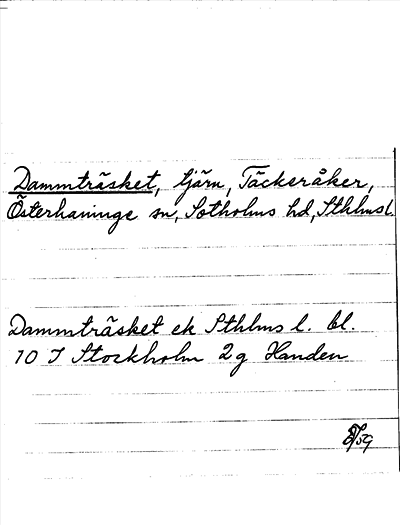 Dammträsket, tjärn, Täckeråker,
Österhaninge sn, Sotholms hd, Sthlms l.
Dammträsket ek Sthlms l. bl.
10 I Stockholm 2 g Handen